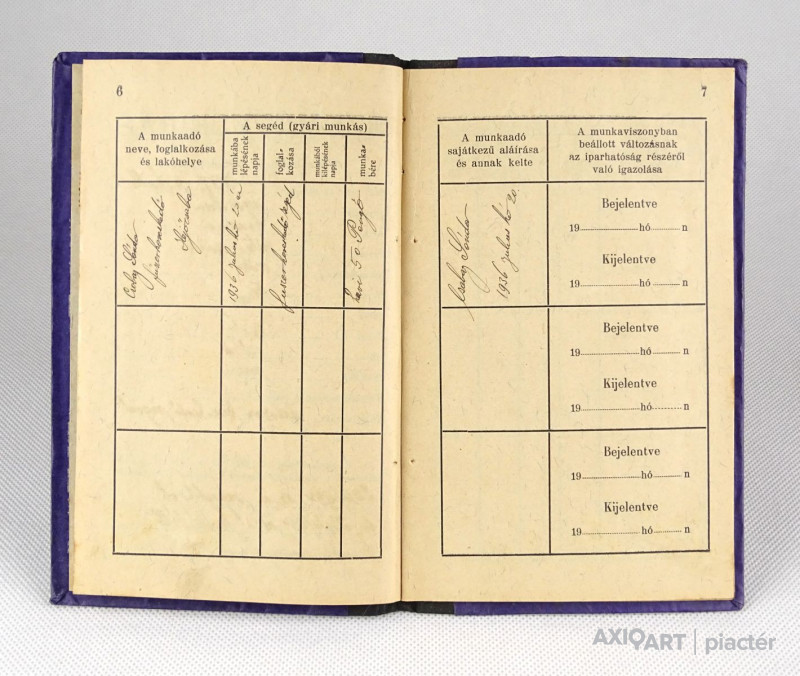 6
A munkaadó
neve, foglalkozása
és lakóhelye
A segéd (gyári munkás)
munkába
lépésének
napja
foglal-
kozása
munkából
kilépésének
napja
munka-
bére
Sándor
1936 julius hó 20 án
segéd
havi 50 Pengő
7
A munkaadó
sajátkezű aláírása
és annak kelte
A munkaviszonyban
beállott változásnak
az iparhatóság részéről
való igazolása
Sándor
1936 julius hó 20.
Bejelentve
19 hó n
Kijelentve
19 hó n
Bejelentve
19 hó n
Kijelentve
19 hó n
Bejelentve
19 hó n
Kijelentve
19 hó n
AXIOART | piactér